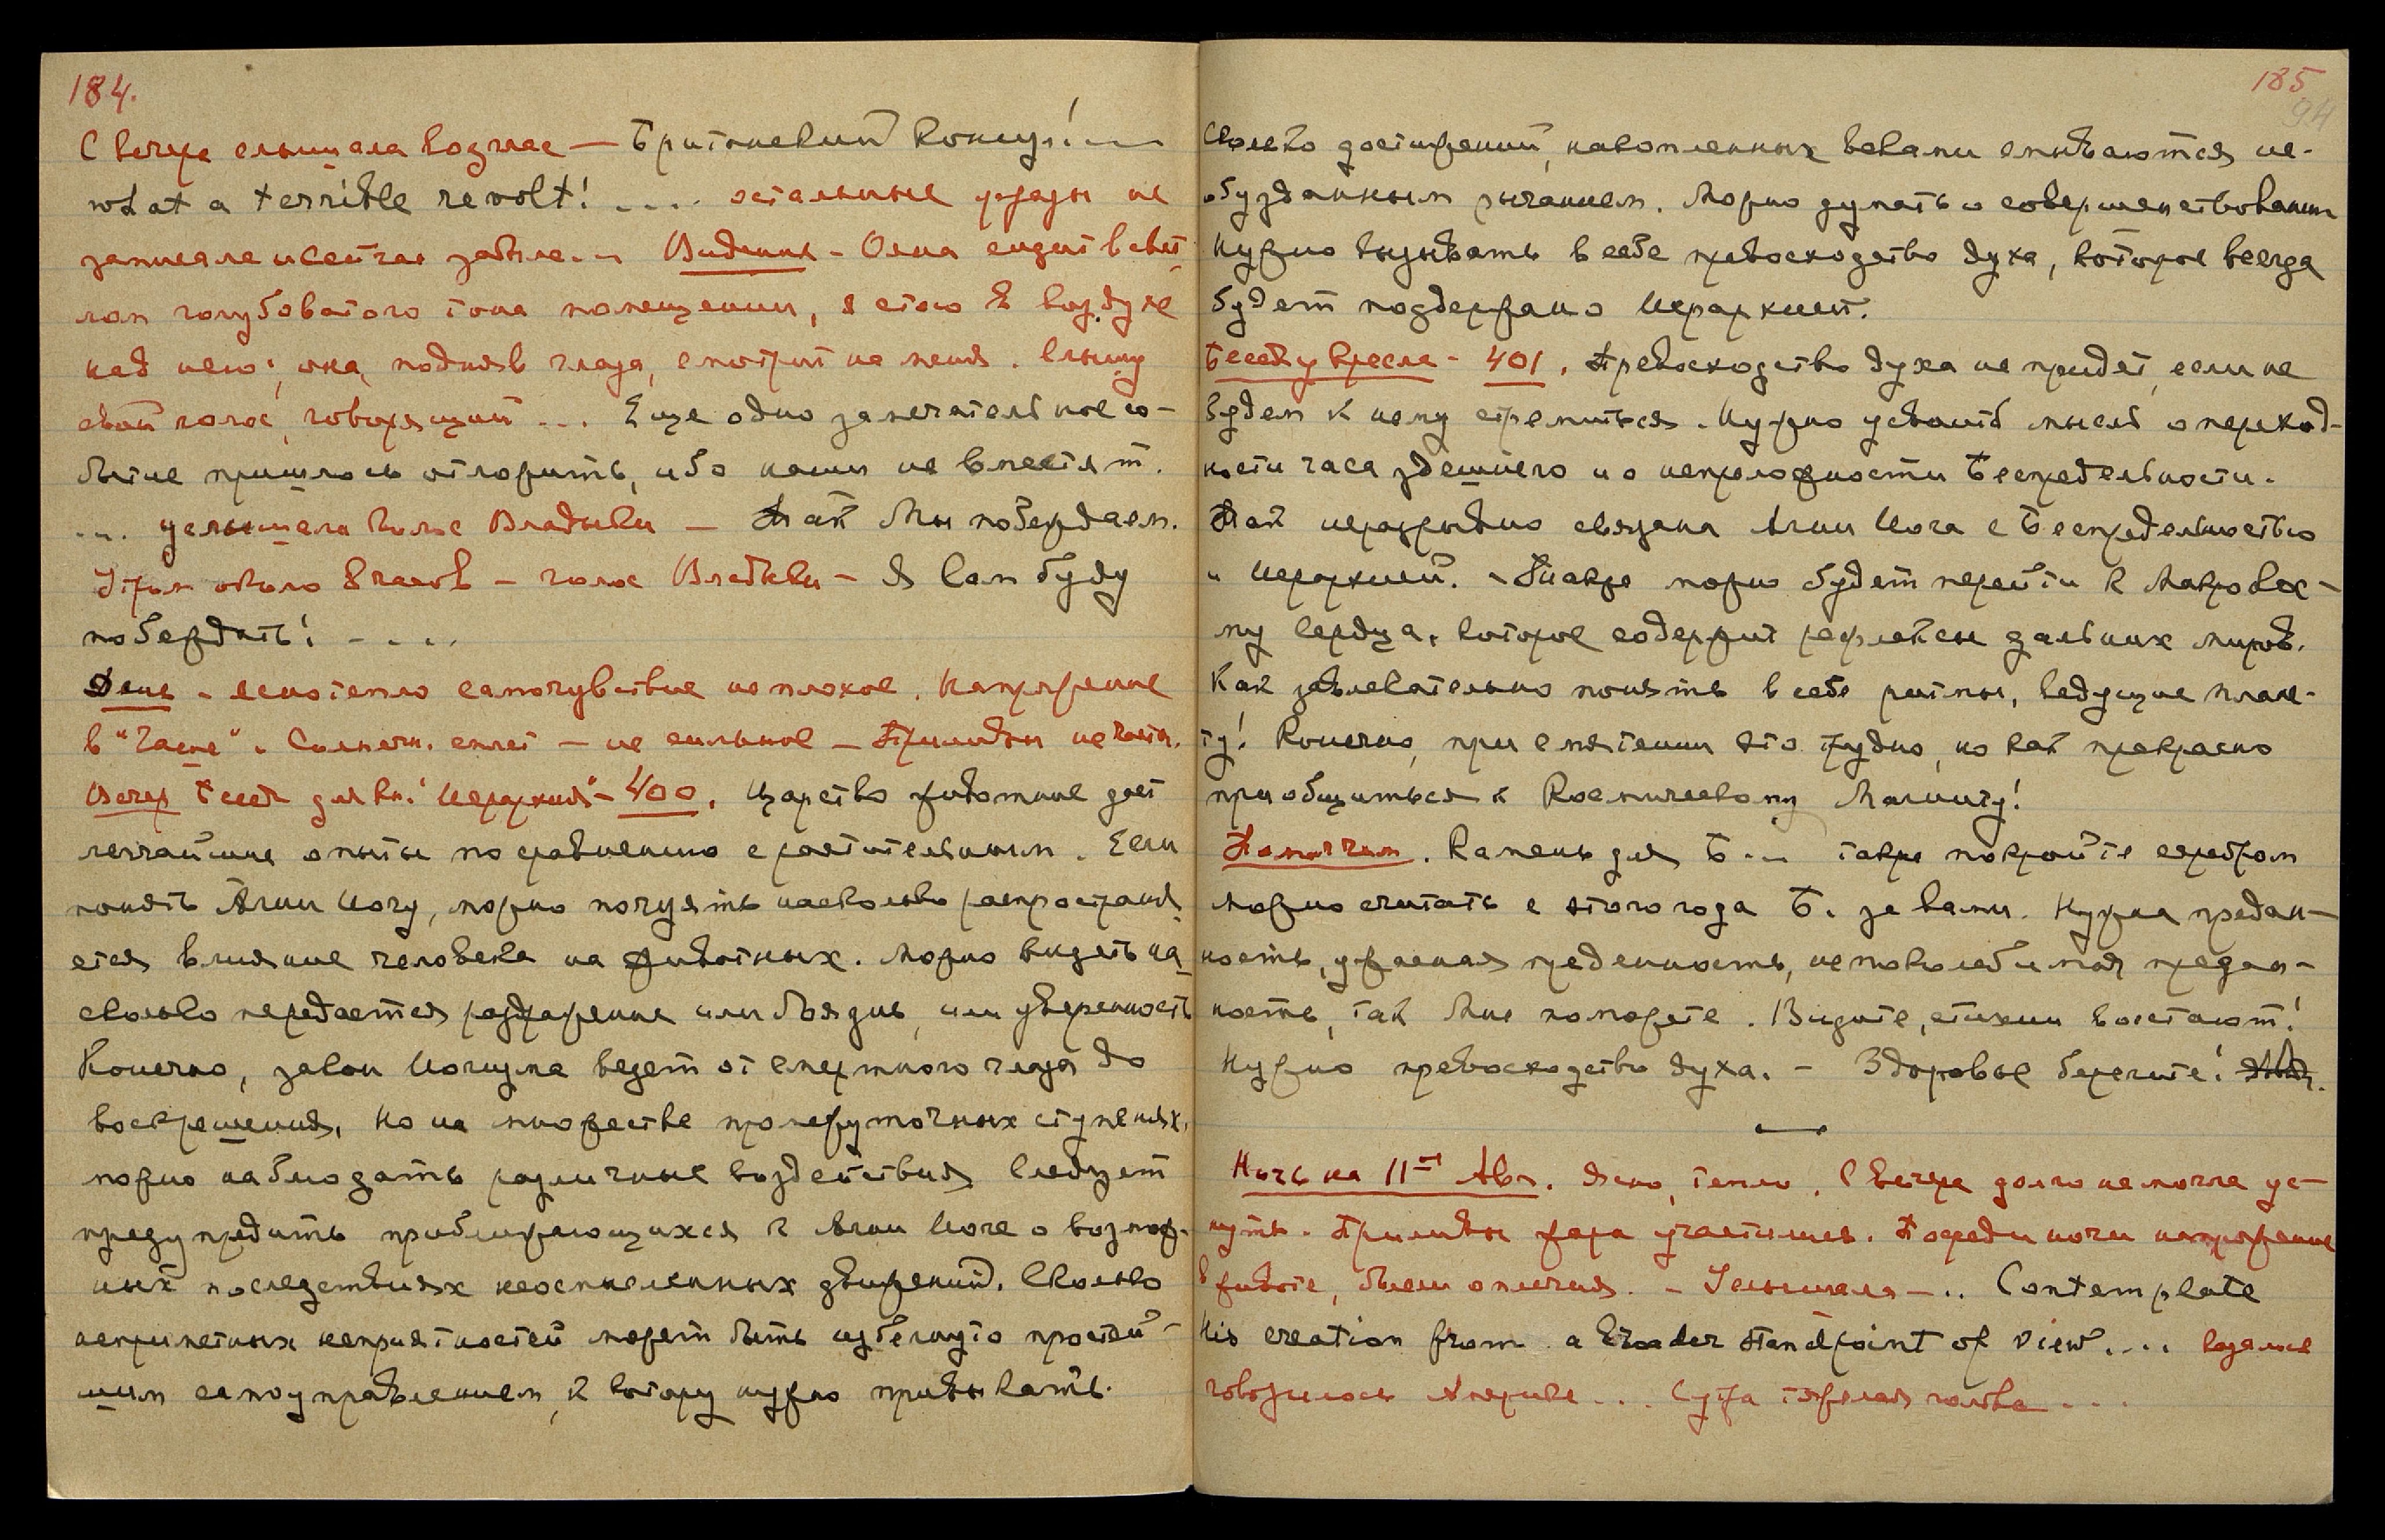 184.
С вечера слышала возглас — Британский Консул!...
what a terrible revolt! .... остальные фразы не
записала и сейчас забыла... Видение - Ояна сидит в свет-
лом голубоватого тона помещении, я стою в воздухе
над нею; она, подняв глаза, смотрит на меня. Слышу
свой голос, говорящий ... Еще одно замечательное со-
бытие пришлось отложить, ибо наши не вместят.
... услышала Голос Владыки — Так Мы побеждаем.
Утром около 8 часов - голос Владыки - Я Вам буду
побеждать! ....
День - ясно тепло самочувствие не плохое. Напряжение
в "Чаше". Солнечн. сплет - не сильное - Приливы не часты.
Вечер Беседа для кн. "Иерархия" - 400. Царство животное дает
легчайшие опыты по сравнению с растительным. Если
понять Агни Йогу, можно почуять насколько распространя-
ется влияние человека на животных. Можно видеть на-
сколько передается раздражение или боязнь, или уверенность
Конечно, закон Йогизма ведет от смертного глаза до
воскрешения. Но на множестве промежуточных ступенях,
можно наблюдать различные воздействия Следует
предупредить приближающихся к Агни Йоге о возмож-
ных последствиях неосмысленных движений. Сколько
неприметных неприятностей может быть избегнуто простей-
шим самоуправлением, к котору нужно привыкать.
185
94
Сколько достижений, накопленных веками смываются не-
обузданным рычанием. Можно думать о совершенствовании
Нужно вызывать в себе превосходство духа, которое всегда
будет поддержано Иерархией.
Беседа у кресла - 401. Превосходство духа не придет, если не
будем к нему стремиться. Нужно усвоить мысль о переход-
ности часа здешнего и о непреложности Беспредельности.
Так неразрывно связана Агни Йога с Беспредельностью
и Иерархией. - Также можно будет перейти к Макрокос-
му Сердца, которое содержит рефлексы дальних миров.
Как завлекательно понять в себе ритмы, ведущие плане-
ту! Конечно, при смятении это трудно, но как прекрасно
приобщиться к Космическому Магниту!
Помогаем. Камень для Б... также покройте серебром
можно считать с этого года Б. за вами. Нужна предан-
ность, ужасная преданность, непоколебимая предан-
ность, так Мне поможете. Видите, стихии восстают!
Нужно превосходство духа. - Здоровье берегите!
Ночь на 11ое Авг. Ясно, тепло. С вечера долго не могла ус-
нуть. Приливы жара участились. Посреди ночи напряжение
в животе, были опять. - Услышала - .. Contemplate
His creation from a broader standpoint of view.... казалось
говорилось Америке ... Сутра тяжелая голова ...